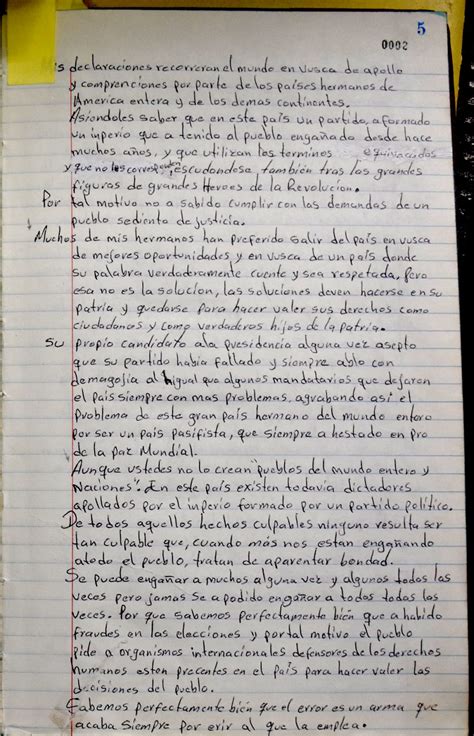 5
0002
is declaraciones recorreran el mundo en vusca de apollo
y comprenciones por parte de los países hermanos de
America entera y de los demas continentes.
Asiondoles saber que en este país un partido, a formado
un inperio que a tenido al pueblo engañado desde hace
muchos años, y que utilizan los terminos equivocados
y que no les corresponden, escudondose también tras las grandes
figuras de grandes Heroes de la Revolucion.
Por tal motivo no a sabido cumplir con las demandas de un
pueblo sediento de justicia.
Muchos de mis hermanos han preferido salir del país en vusca
de mejores oportunidades y en vusca de un país donde
su palabra verdaderamente cuente y sea respetada, pero
esa no es la solucion, las soluciones deven hacerse en su
patria y quedarse para hacer valer sus derechos como
ciudadonos y como verdaderos hijos de la patria.
Su propio candidato ala presidencia alguna vez asepto
que su partido había fallado y siempre ablo con
demagojia al higual que algunos mandatarios que dejaron
el país siempre con mas problemas, agrabando así el
problema de este gran país hermano del mundo entero
por ser un país pasifista, que siempre a hestado en pro
de la paz Mundial.
Aunque ustedes no lo crean "pueblos del mundo entero y
Naciones". En este país existen todavia dictadores
apollados por el inperio formado por un partido político.
De todos aquellos hechos culpables ninguno resulta ser
tan culpable que, cuando más nos estan engañando
atodo el pueblo, tratan de aparentar bondad.
Se puede engañar a muchos alguna vez y algunos todas las
veces pero jamas se a podido engañar a todos todas las
veces. Por que sabemos perfectamente bién que a habido
fraudes en las elecciones y portal motivo el pueblo
pide a organismos internacionales defensores de los derechos
humanos esten precentes en el país para hacer valer las
decisiones del pueblo.
Sabemos perfectamente bién que el error es un arma que
acaba siempre por erir al que la emplea.